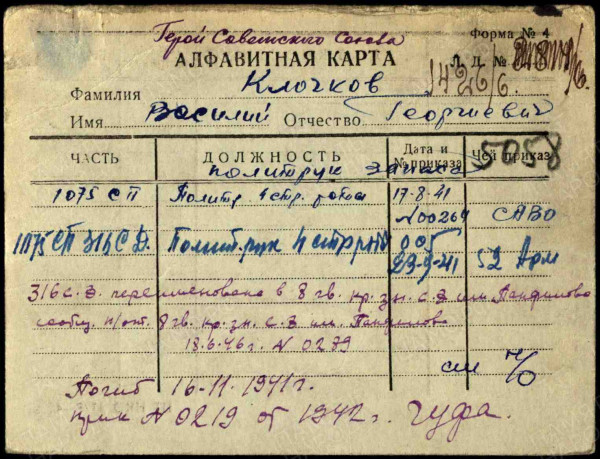 Герой Советского Союза
Форма № 4
АЛФАВИТНАЯ КАРТА
Л. Д. №
1426/6.
Фамилия Клочков
Имя Василий Отчество Георгиевич
5058
ЧАСТЬ ДОЛЖНОСТЬ Дата и № приказа Чей приказ
политрук запаса
1075 СП Политр 4 стр. рота 17-8-41
N00264 САВО
1075 СП 316 С.Д. Политрук 4 стр 005
23-9-41 52 Арм
316 с. д. переименована в 8 гв. кр. зн. с. д им. Панфилова
сообщ. 8 гв. кр. зн. с. д им. Панфилова
18.6.46 г. N 0279
Погиб 16-11-1941 г.
прик N 0219 от 1942 г. ГУФА.